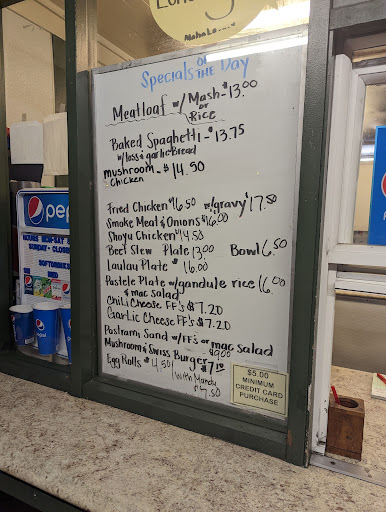 Specials OF THE Day
Meatloaf w/ Mash - $13.00
or
Rice
Baked Spaghetti - $13.75
w/toss & garlic Bread
mushroom - $14.50
Chicken
Fried Chicken $16.50 w/gravy $17.50
Smoke Meat & Onions $16.00
Shoyu Chicken $14.50
Beef Stew Plate 13.00 Bowl 6.50
Laulau Plate $16.00
Pastele Plate w/gandule rice 16.00
& mac salad
Chili Cheese FF's $7.20
Garlic Cheese FF's $7.20
Pastrami Sand w/FF's or mac salad
$9.00
Mushroom & Swiss Burger - $7.10
Egg Rolls $4.50
(with Mandu
$7.50
$5.00
MINIMUM
CREDIT CARD
PURCHASE
pep